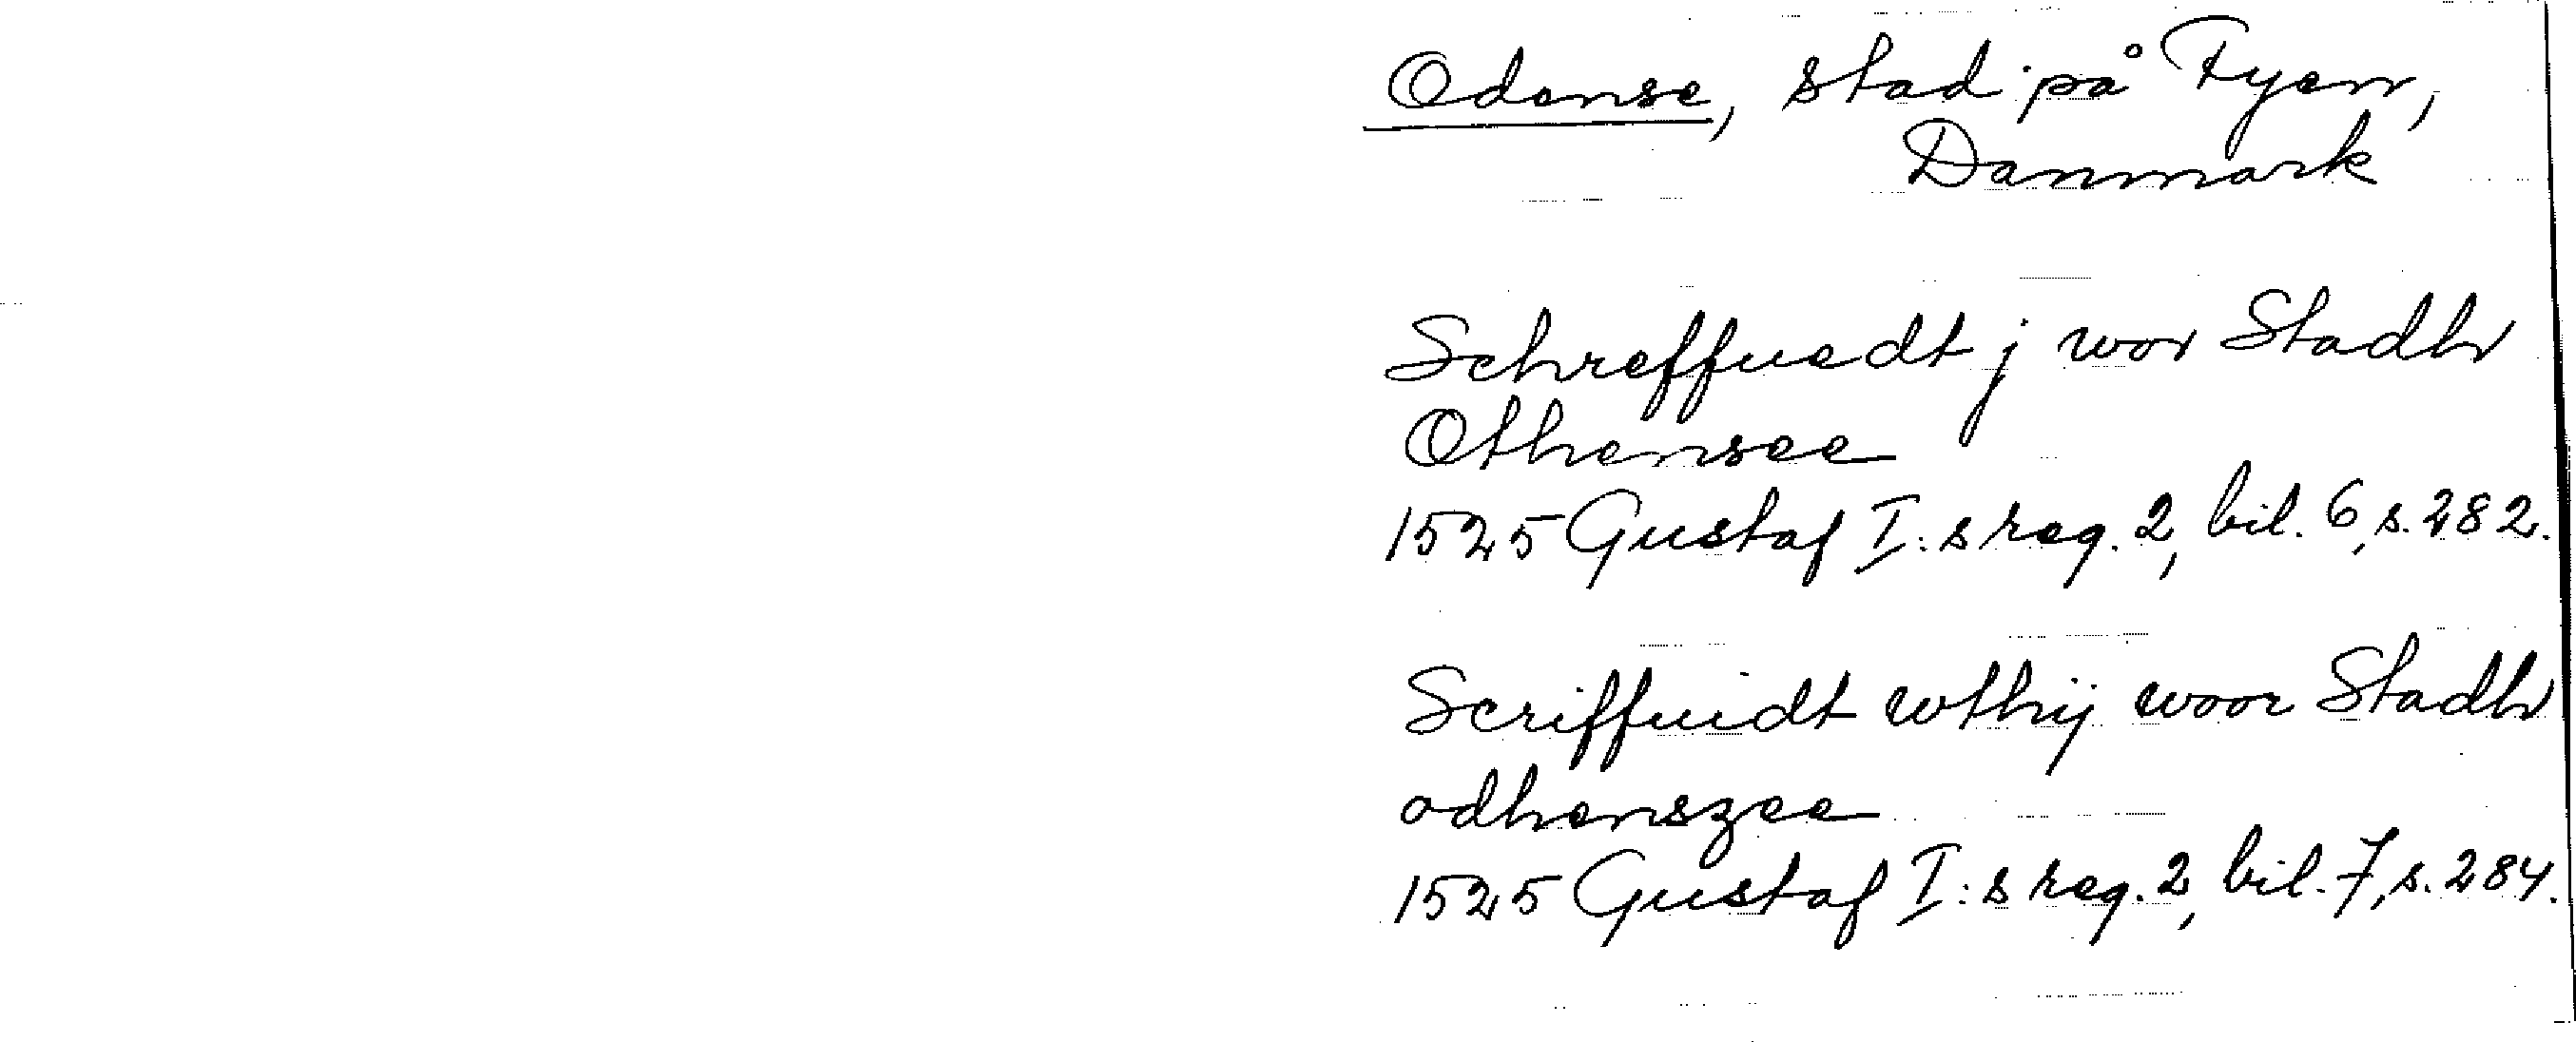 Odense, stad på Fyen,
Danmark
Schreffuedt j wor Stadh
Othensee
1525 Gustaf I:s reg. 2, bil. 6, s. 282.
Scriffuidt wthij woor Stadh
odhenszee
1525 Gustaf I:s reg. 2, bil. 7, s. 284.